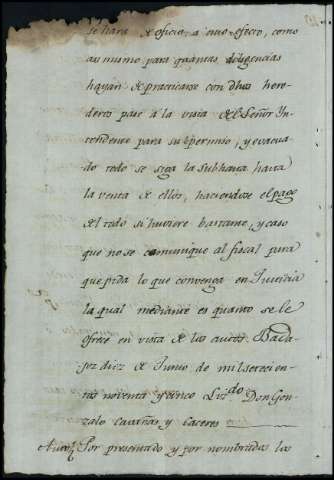 se hara de oficio, a cuio efecto, como
asi mismo para quantas diligencias
hayan de practicarse con dhos here-
deros pase a la vista del Señor Yn-
tendente para su permiso, y evacua-
do todo se siga la subhasta hasta
la venta de ellos, haciendose el pago
del todo si huviere bastante, y caso
que no se comunique al fiscal para
que pida lo que convenga en Justicia
la qual mediante es quanto se le
ofrece en vista de los autos. Bada-
joz diez de Junio de mil setecien-
tos noventa y cinco Lizdo Don Gon-
zalo Cavañas y Caceres
Auto Por presentado y por nombradas las